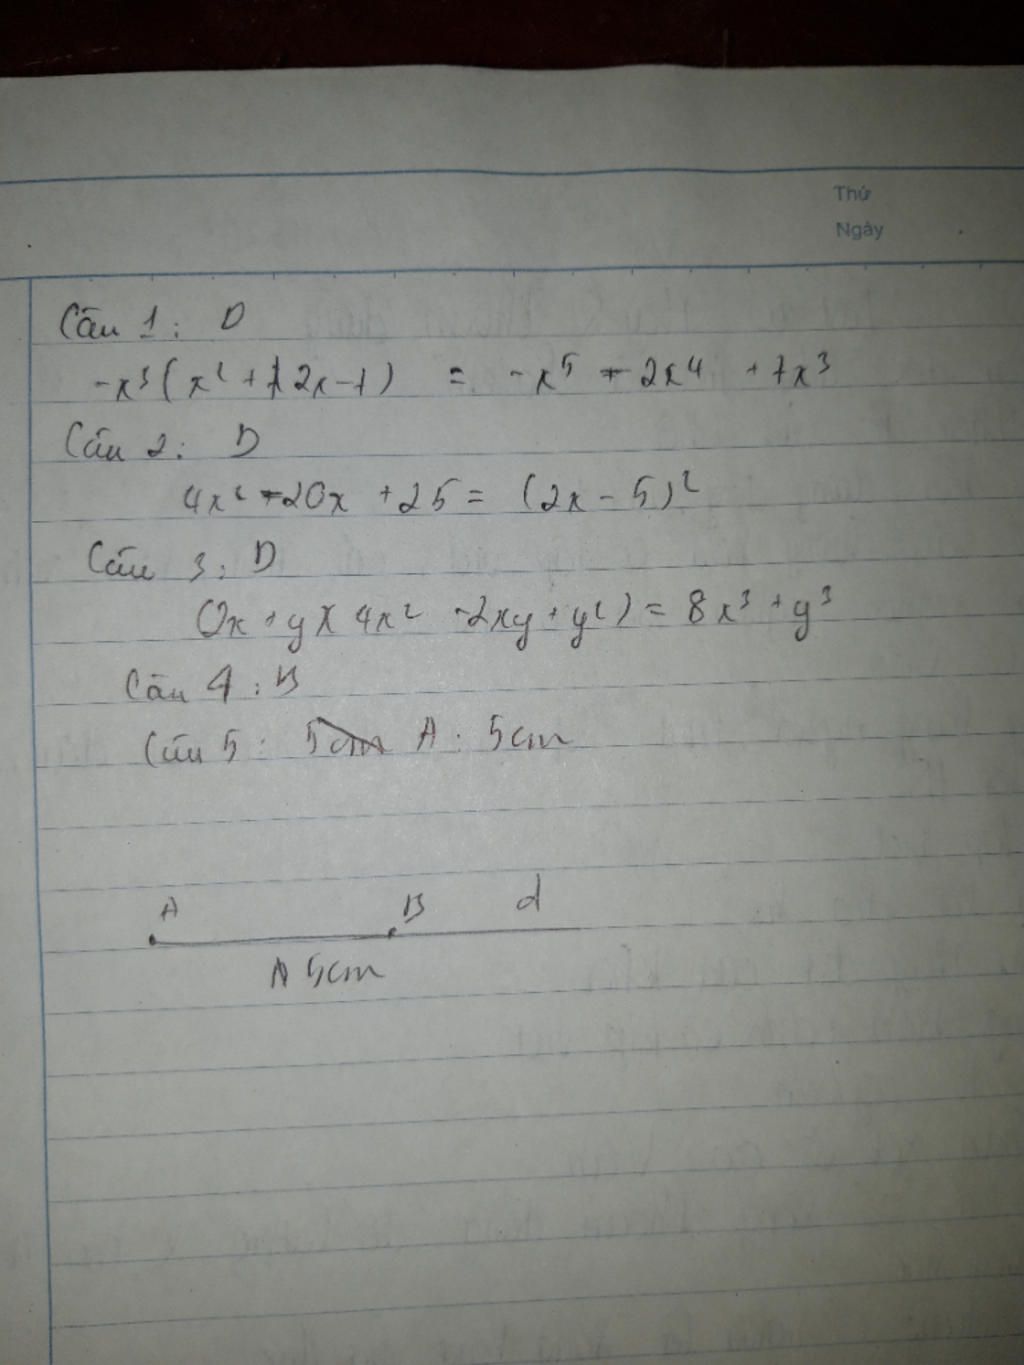 Thứ
Ngày
Câu 1: D
-x³(x² + 2x-1) = -x⁵ - 2x⁴ + 1x³
Câu 2: D
4x² - 20x + 25 = (2x - 5)²
Câu 3: D
(2x + y)(4x² - 2xy + y²) = 8x³ + y³
Câu 4: B
Câu 5: 5cm A: 5cm
A B d
5cm